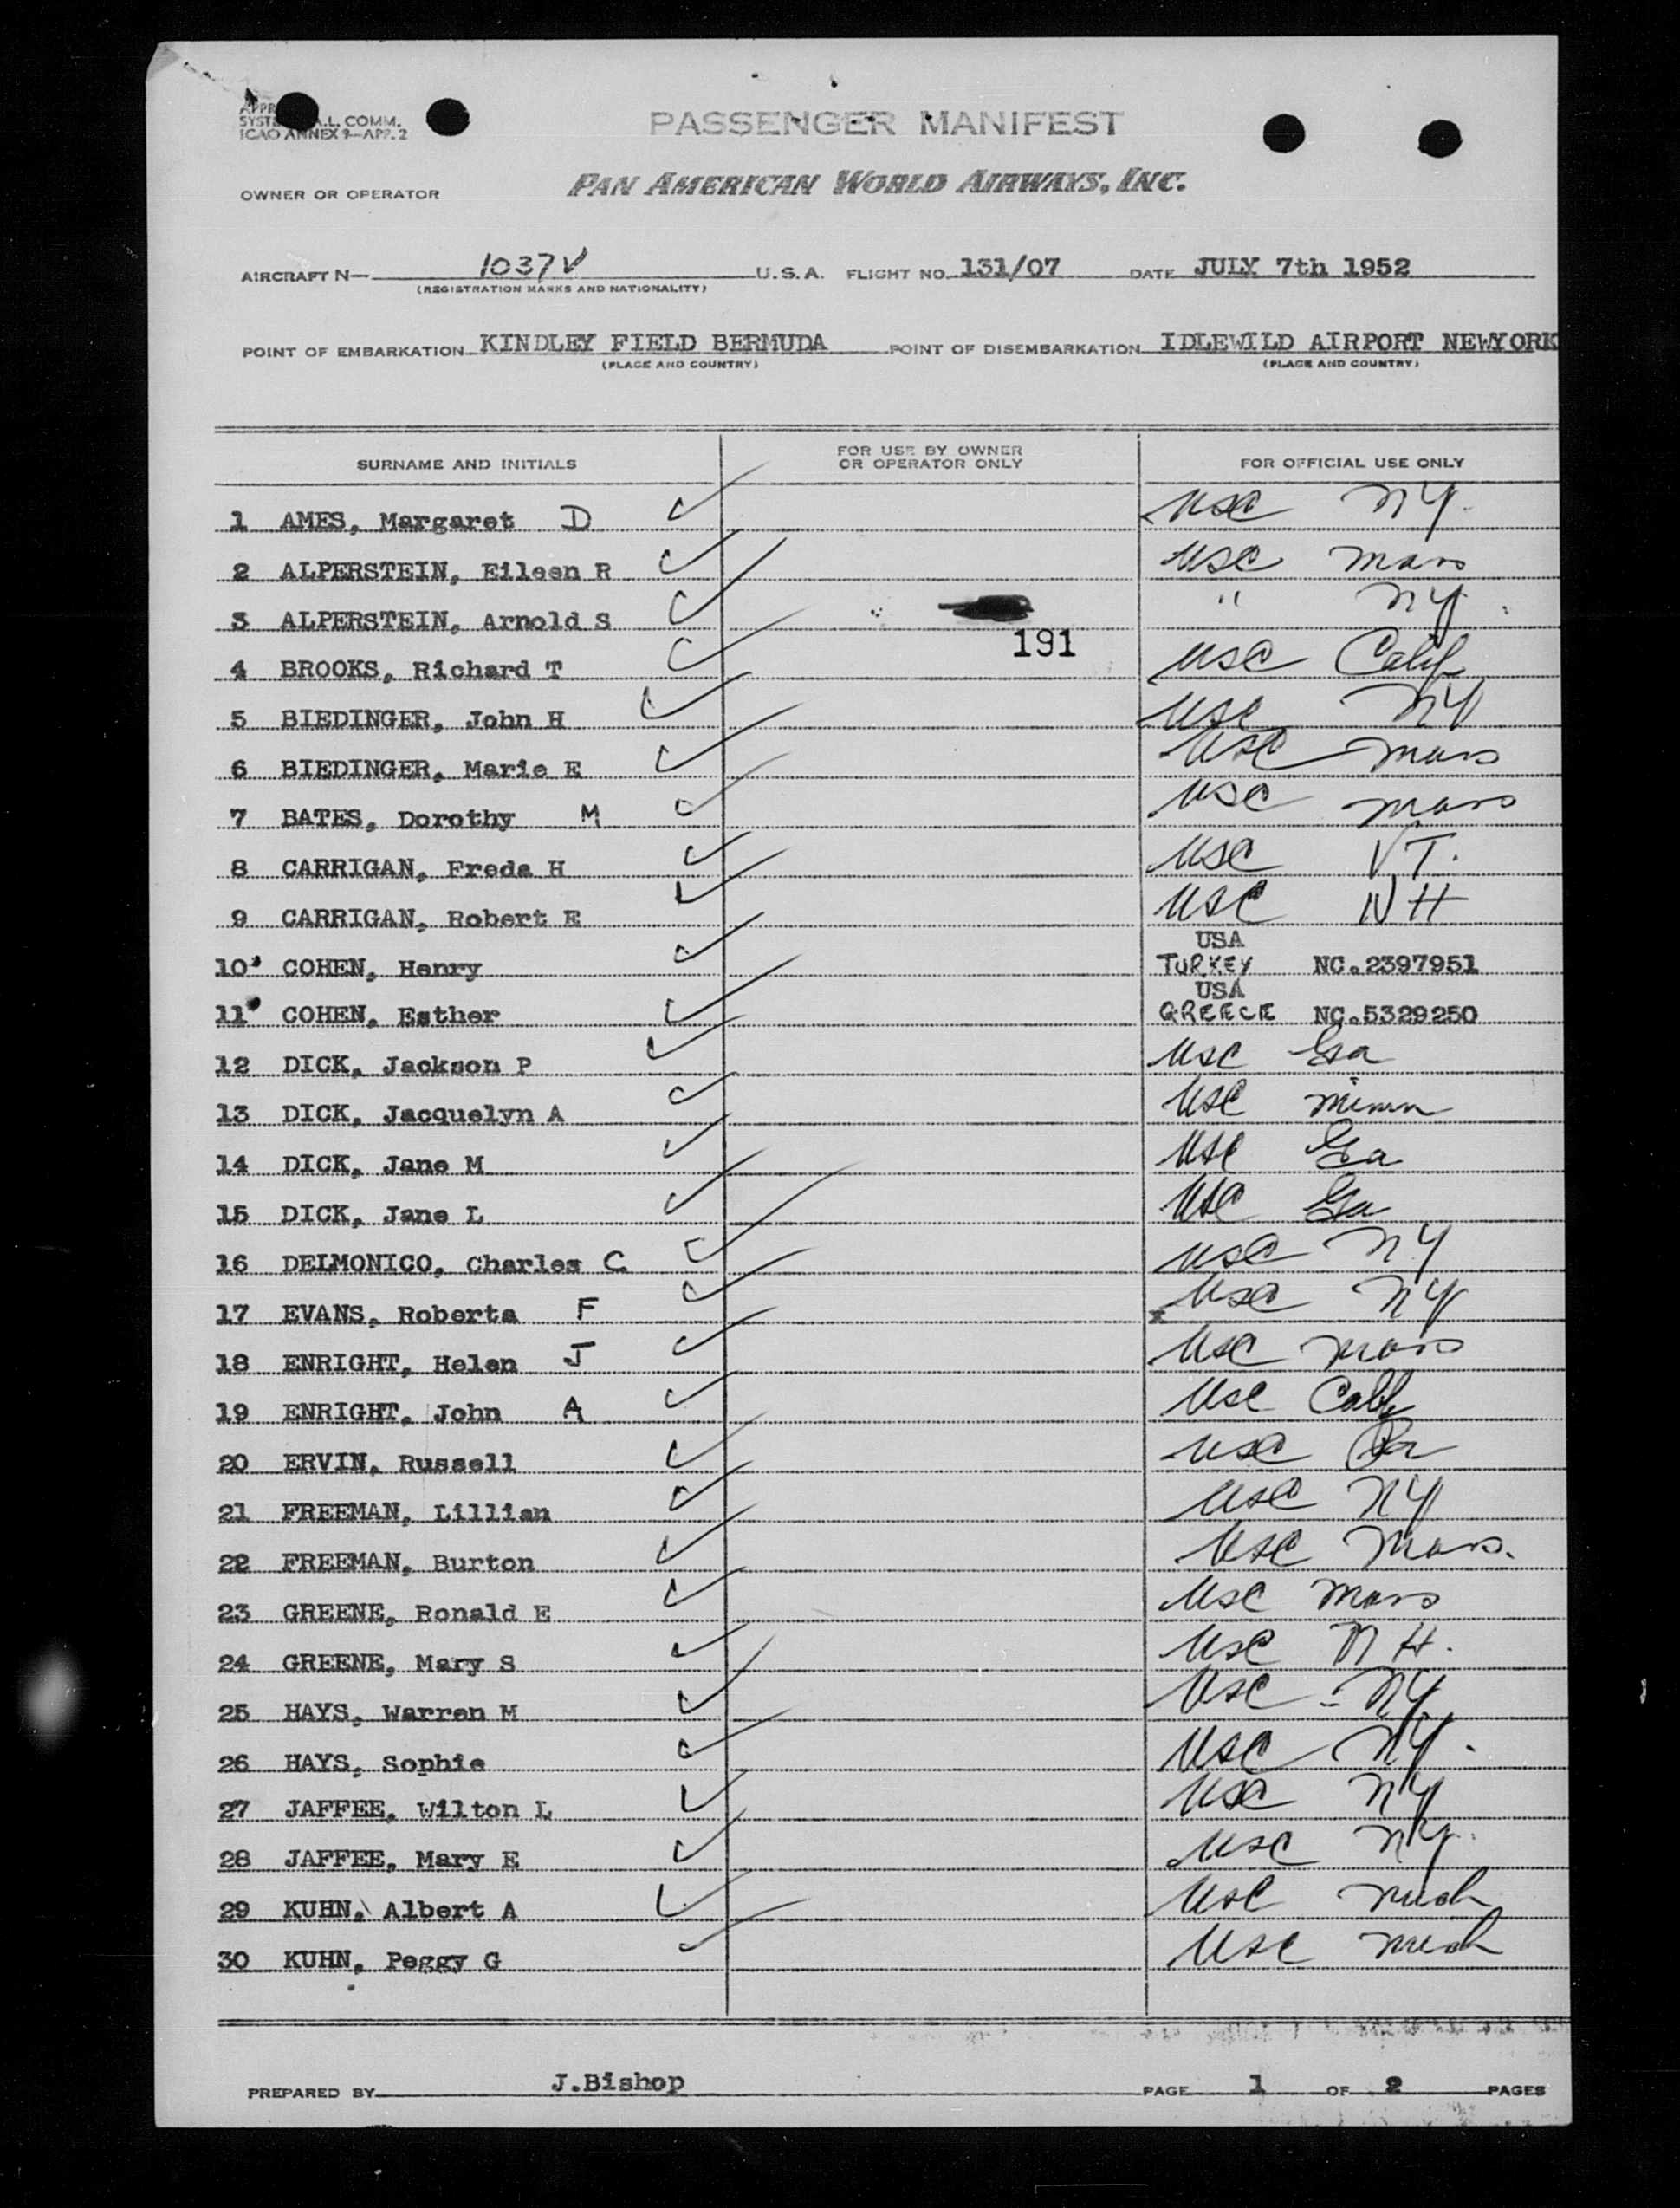 SYST A.L. COMM.
ICAO ANNEX 9—APP. 2
PASSENGER MANIFEST
OWNER OR OPERATOR PAN AMERICAN WORLD AIRWAYS, INC.
AIRCRAFT N— 1037V U.S.A. FLIGHT NO. 131/07 DATE JULY 7th 1952
(REGISTRATION MARKS AND NATIONALITY)
POINT OF EMBARKATION KINDLEY FIELD BERMUDA POINT OF DISEMBARKATION IDLEWILD AIRPORT NEWYORK
(PLACE AND COUNTRY) (PLACE AND COUNTRY)
SURNAME AND INITIALS FOR USE BY OWNER OR OPERATOR ONLY FOR OFFICIAL USE ONLY
1 AMES, Margaret D USC NY.
2 ALPERSTEIN, Eileen R USC Mass
3 ALPERSTEIN, Arnold S " NY.
191
4 BROOKS, Richard T USC Calif
5 BIEDINGER, John H USC NY
6 BIEDINGER, Marie E USC Mass
7 BATES, Dorothy M USC Mass
8 CARRIGAN, Freda H USC VT.
9 CARRIGAN, Robert E USC NH
USA
10 COHEN, Henry TURKEY NC.2397951
USA
11 COHEN, Esther GREECE NC.5329250
12 DICK, Jackson P USC Ga
13 DICK, Jacquelyn A USC Minn
14 DICK, Jane M USC Ga
15 DICK, Jane L USC Ga
16 DELMONICO, Charles C USC NY
17 EVANS, Roberta F x USC NY
18 ENRIGHT, Helen J USC Mass
19 ENRIGHT, John A USC Calif
20 ERVIN, Russell USC Pa
21 FREEMAN, Lillian USC NY
22 FREEMAN, Burton USC Mass.
23 GREENE, Ronald E USC Mass
24 GREENE, Mary S USC NH.
25 HAYS, Warren M USC - NY
26 HAYS, Sophie USC NY.
27 JAFFEE, Wilton L USC NY
28 JAFFEE, Mary E USC NY.
29 KUHN, Albert A USC Mich
30 KUHN, Peggy G USC Mich
PREPARED BY J.Bishop PAGE 1 OF 2 PAGES